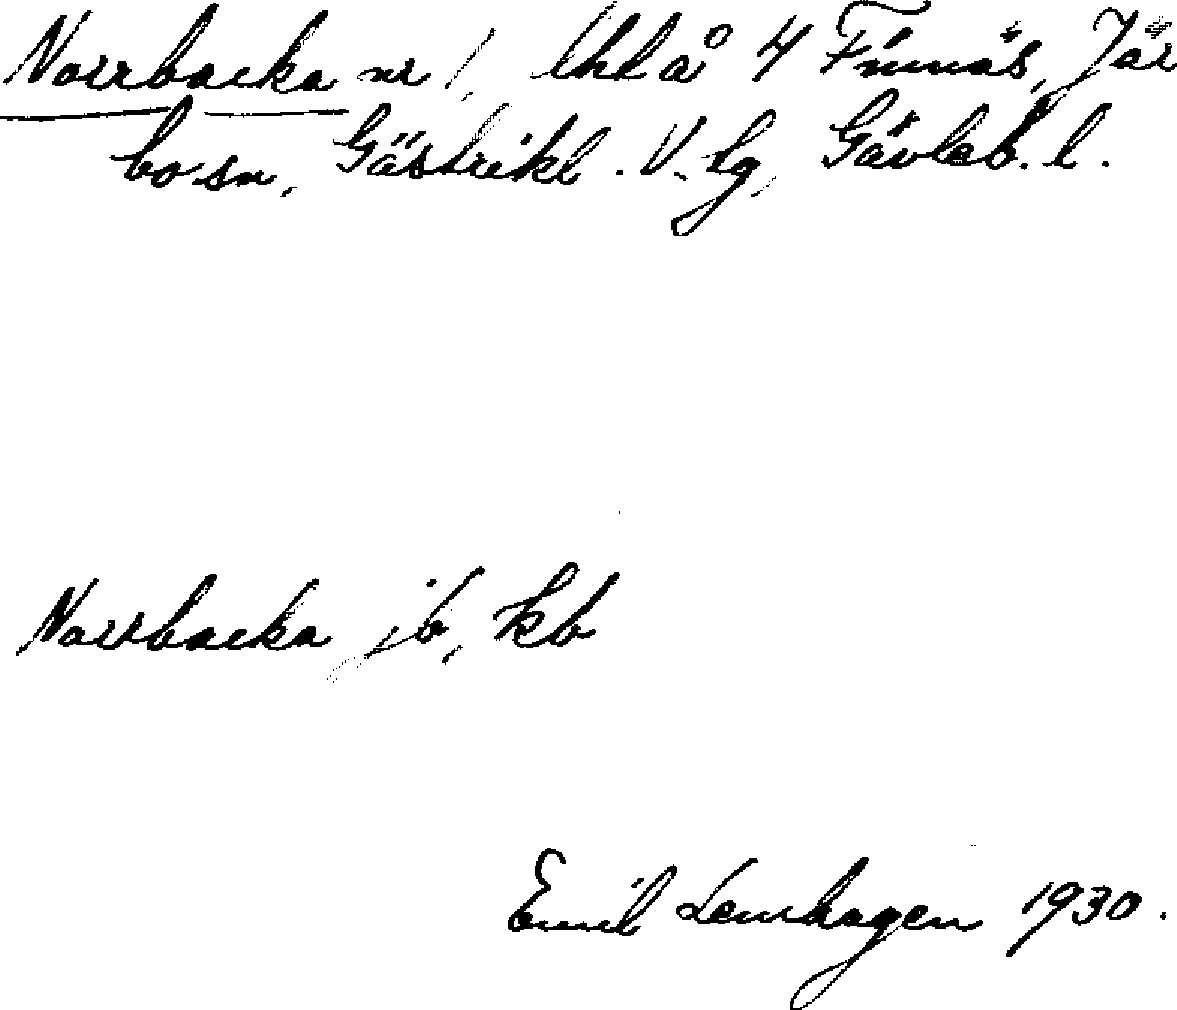 Norrbacka nr 1, lhl å 4 Finnäs, Jär
bo sn, Gästrikl. V. lg, Gävleb. l.
Norrbacka jb, kb
Emil Lemhagen 1930.